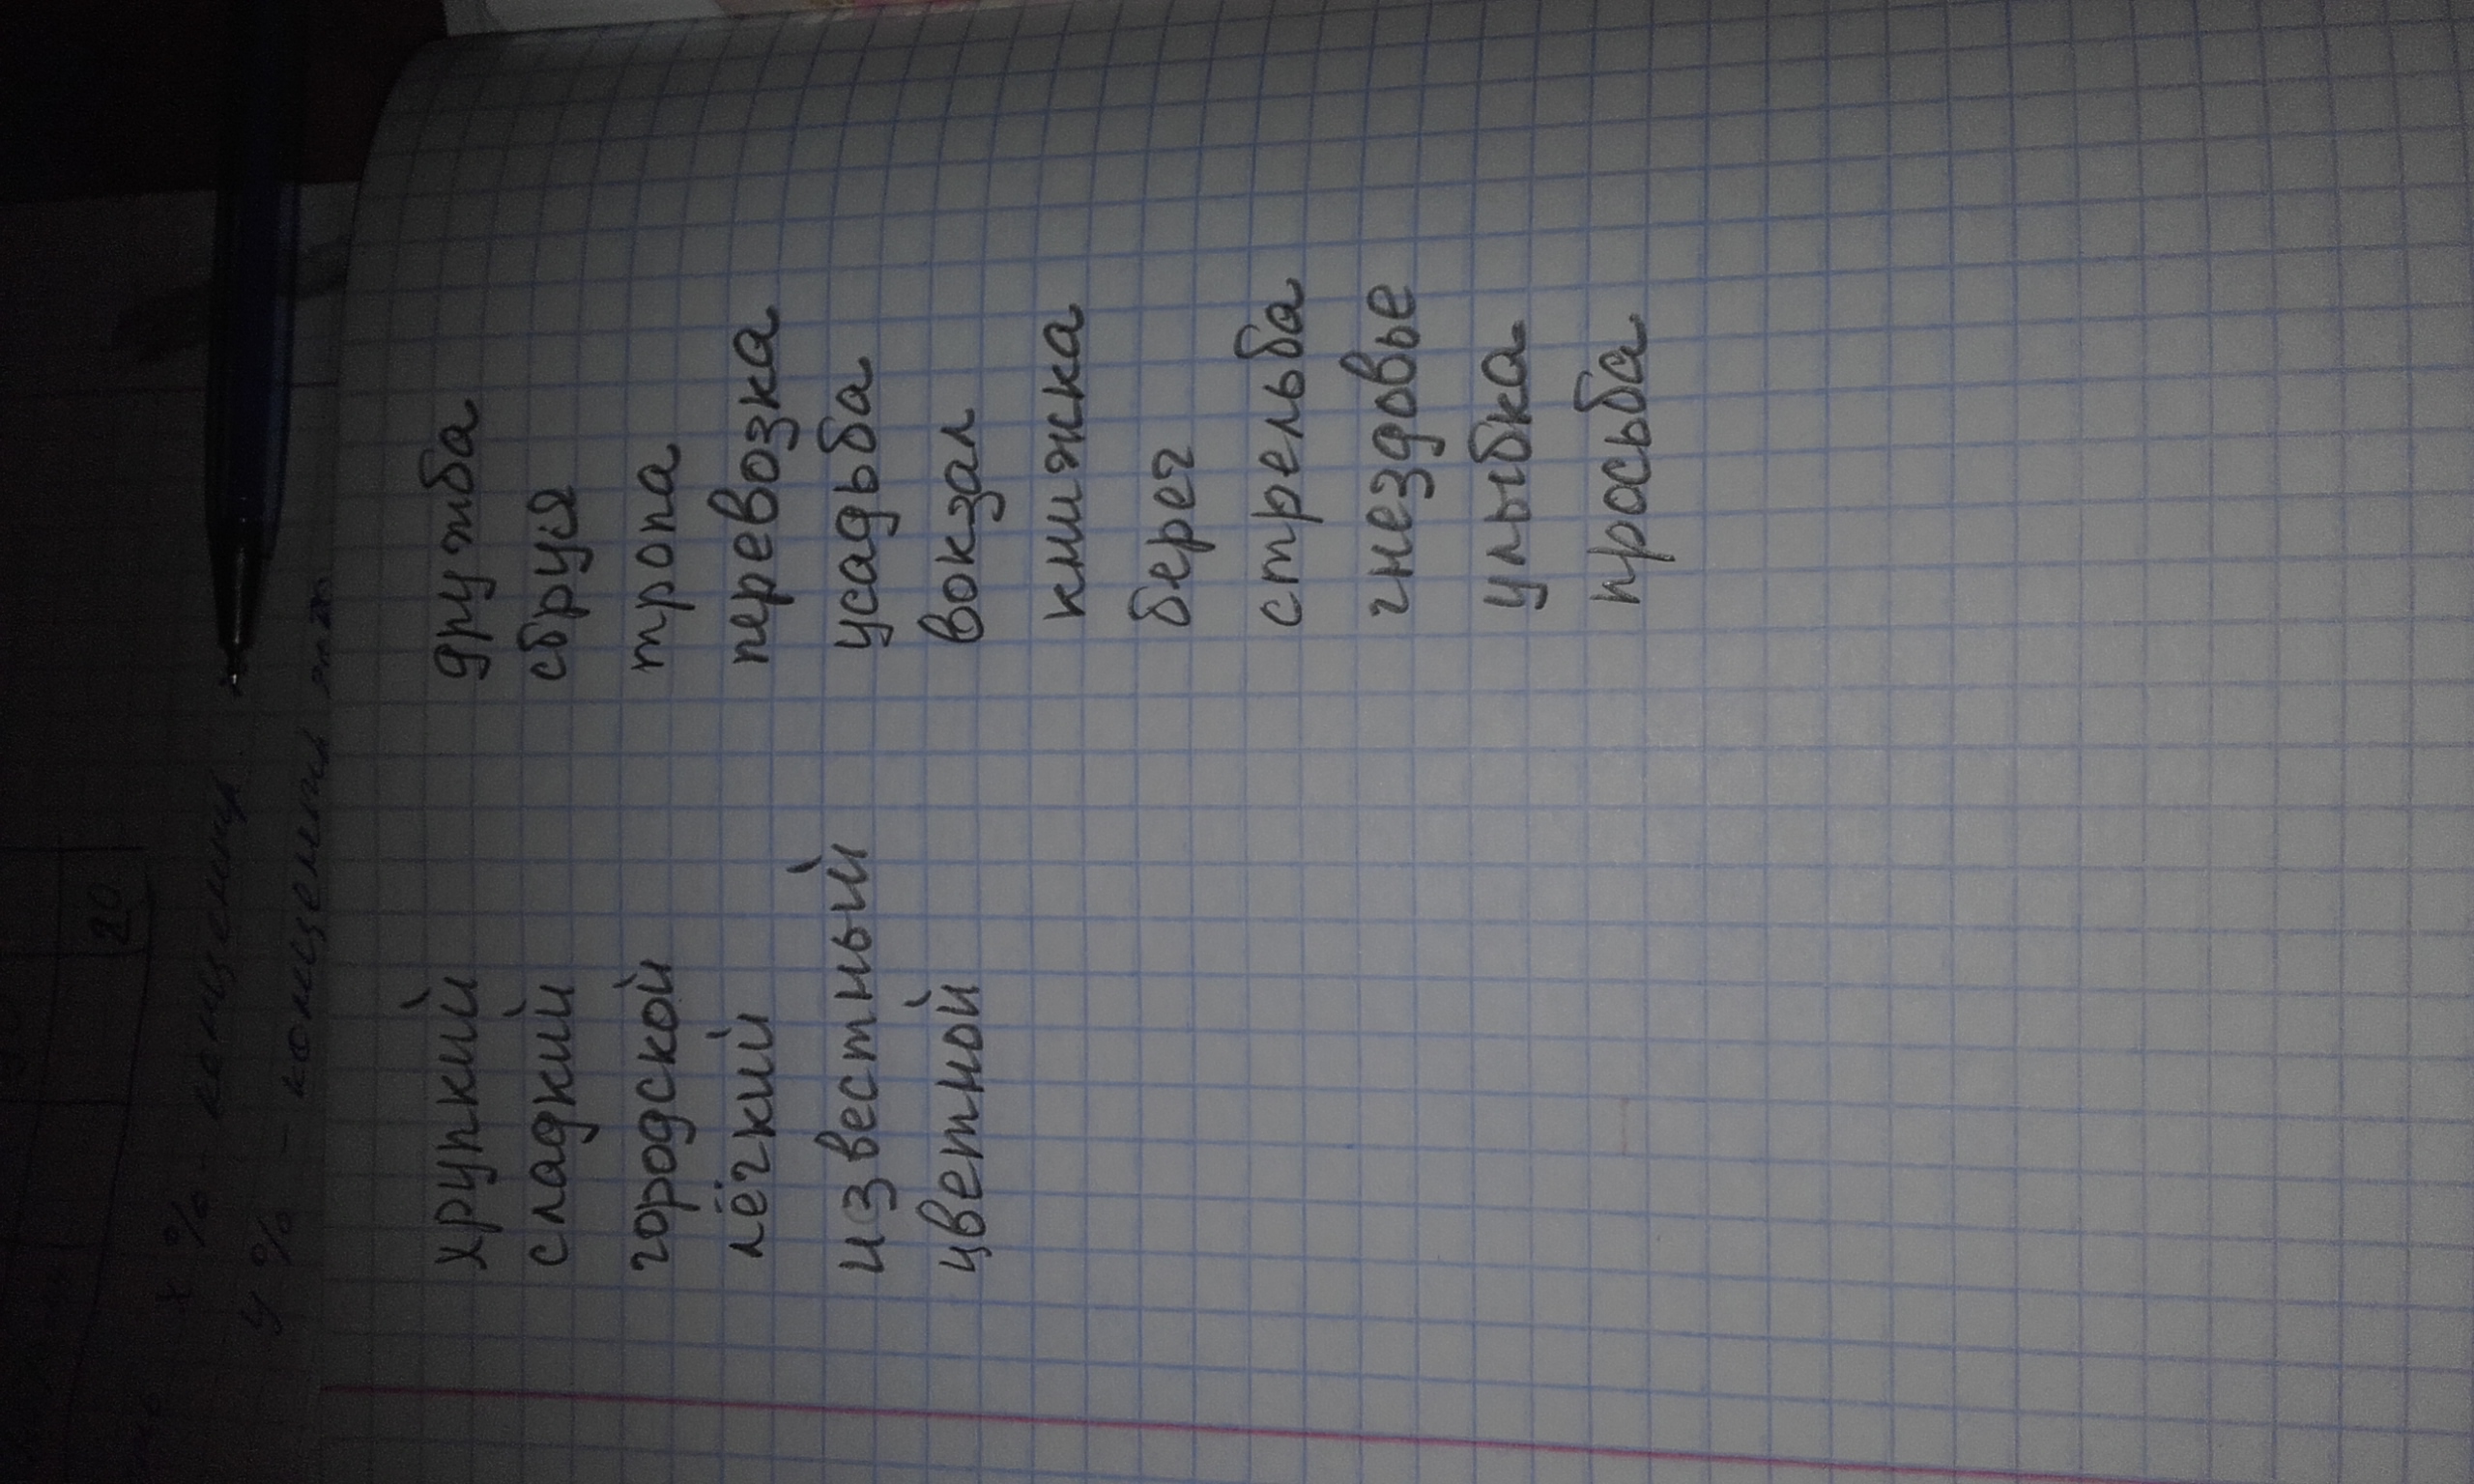 хрупкий дружба
сладкий сбруя
городской тропа
лёгкий перевозка
известный усадьба
цветной вокзал
книжка
берег
стрельба
гнездовье
улыбка
просьба
20
x % -
y % -